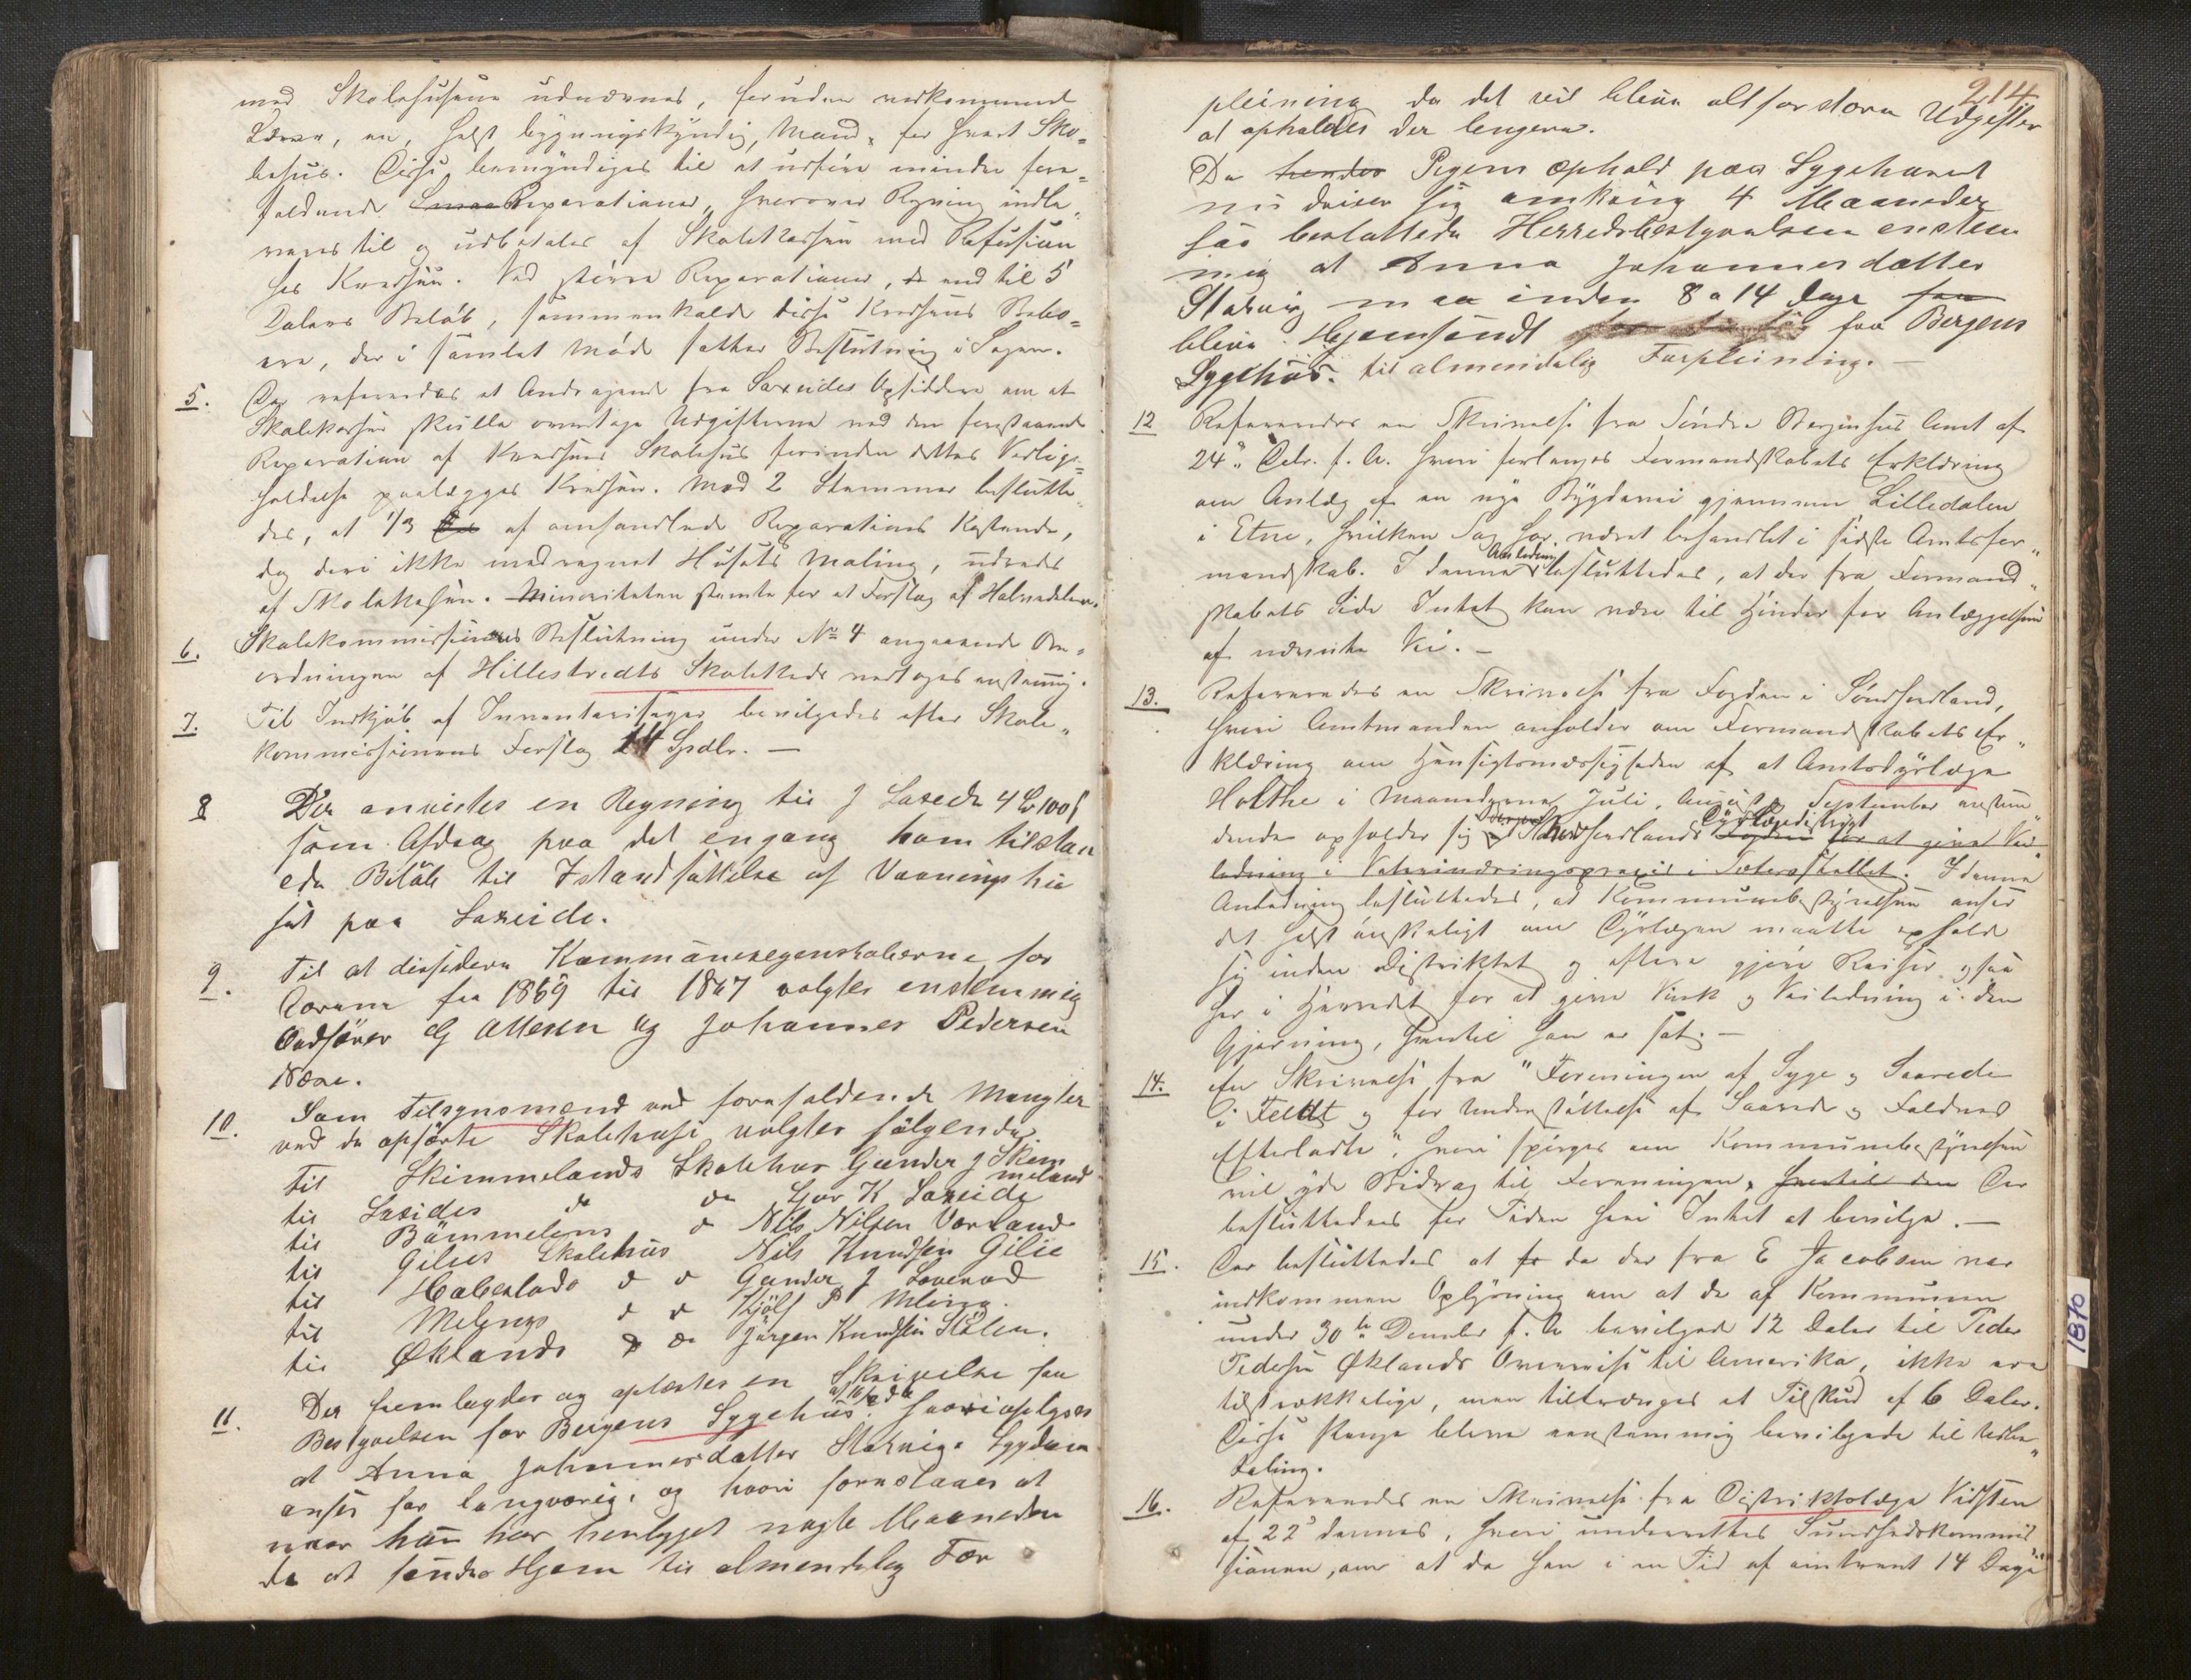 med Skolehusene udnævnes, foruden vedkommende
Lærer, en, helst bygningskyndig, Mand, for hvert Sko=
lehus. Disse bemyndiges til at udføre mindre fore=
faldende Smaa Reparationer, hvorover Regning indle=
veres til og udbetales af Skolekassen med Refusion
hos Kredsen. Ved større Reparationer, end til 5
Dalers Beløb, sammenkalde disse Kredsens Bebo=
ere, der i samlet Møde fatter Beslutning i Sagen.
5. Der refereredes et Andragende fra Saxeides Opsiddere om at
Skolekassen skulle overtage Udgifterne ved den forestaaende
Reparation af Kredsens Skolehus forinden dettes Vedlige=
holdelse paalægges Kredsen. Med 2 Stemmer beslutte=
des, at 1/3 af omhandlede Reparations Kostende,
dog deri ikke medregnet Husets Maling, udredes
af Skolekassen. Minoriteten stemte for et Forslag af Halvedelen.
6. Skolekommissionens Beslutning under No 4 angaaende Om=
ordningen af Hillestvedts Skolekreds vedtoges enstemmig.
7. Til Indkjøb af Inventarisager bevilgedes efter Skole=
kommissionens Forslag 24 Spdlr. —
8 Der anvistes en Regning til J Saxeide 4 100
som Afdrag paa det engang ham tilstaa
ede Beløb til Istandsættelse af Vaaningshu
set paa Saxeide.
9. Til at desidere Kommuneregnskaberne for
Aarene fra 1869 til 1867 valgtes enstemmig
Ordfører G Ottesen og Johannes Pedersen
Næse.
10. Som Tilsynsmænd ved forefaldende Mangler
ved de opførte Skolehuse valgtes følgende
til Skimmelands Skolehus Gunder J Skim
meland
til Saxides do do Sjur K Saxeide
til Bømmelens d Nils Nilsen Vorland
til Gilies Skolehus Nils Knudsen Gilie
til Habeslads d d Gunder J Loverød
til Melings d d Kjølf P Meling.
til Øklands d do Jørgen Knudsen Stølen.
11. Der fremlagdes og oplæstes en Skrivelse fra
Bestyrelsen for Bergens Sygehus, hvori oplyses
at Anna Johannesdatter Stakvigs Sygdom
anses for langvarig, og hvori foreslaaes at
naar hun har henligget nogle Maaneder
da at sendes Hjem til almendelig For
214
pleining da det vil blive alt for store Udgifter
at opholdes der lengere.
Da hendes Pigens Ophold paa Sygehuset
nu dreier sig omkring 4 Maaneder
saa besluttede Herredsbestyrelsen enstem
mig at Anna Johannesdatter
Stakvig maa inden 8 a 14 Dage
blive Hjemsendt fra Bergens
Sygehus til almendelig Forpleining. —
12 Refereredes en Skrivelse fra Søndre Bergenhus Amt af
24de Debr. f. A. hvori forlanges Formandskabets Erklæring
om Anlæg af en nye Bygdevei gjennem Lilledalen
i Etne, hvilken Sag har været behandlet i sidste Amtsfor=
mandskab. I denne Anledning besluttedes, at der fra Formand=
skabets Side Intet kan være til Hinder for Anlæggelsen
af nævnte Vei. —
13. Refereredes en Skrivelse fra Fogden i Søndhordland,
hvori Amtmanden anholder om Formandskabets Er=
klæring om Hensigtsmæssigheden af at Amtsdyrlæge
Holthe i Maanederne Juli, August og September
opholder sig i Søndhordlands Dyrlægedistrikt for at give Vei
ledning i Veterinærpraxis. I denne
Anledning besluttedes, at Kommunebestyrelsen anser
det helst ønskeligt om Dyrlægen maatte opholde
sig inden Distriktet og oftere gjøre Reiser ogsaa
her i Herredet for at give Vink og Veiledning i den
Gjerning, hvortil han er sat. —
14. En Skrivelse fra "Foreningen af Syge og Saarede
i Feldt og for Understøttelse af Saarede og Faldnes
Efterladte", hvori spørges om Kommunebestyrelsen
vil yde Bidrag til Foreningen, hvortil den Der
besluttedes for Tiden heri Intet at bevilge. —
15. Der besluttedes at da der fra E Jacobsen var
indkommen Oplysning om at de af Kommunen
under 30te Decmber f. A bevilgede 12 Daler til Peder
Pedersen Øklands Overreise til Amerika, ikke ere
tilstrækkelige, men tiltrænges et Tilskud af 6 Daler.
Disse Penge bleve eenstemmig bevilgede til Udbe=
taling.
16. Refereredes en Skrivelse fra Distriktslæge Vidsteen
af 22 dennes, hvori underrettes Sundhedskommis
sionen, om at da han i en Tid af omtrent 14 Dage
1870